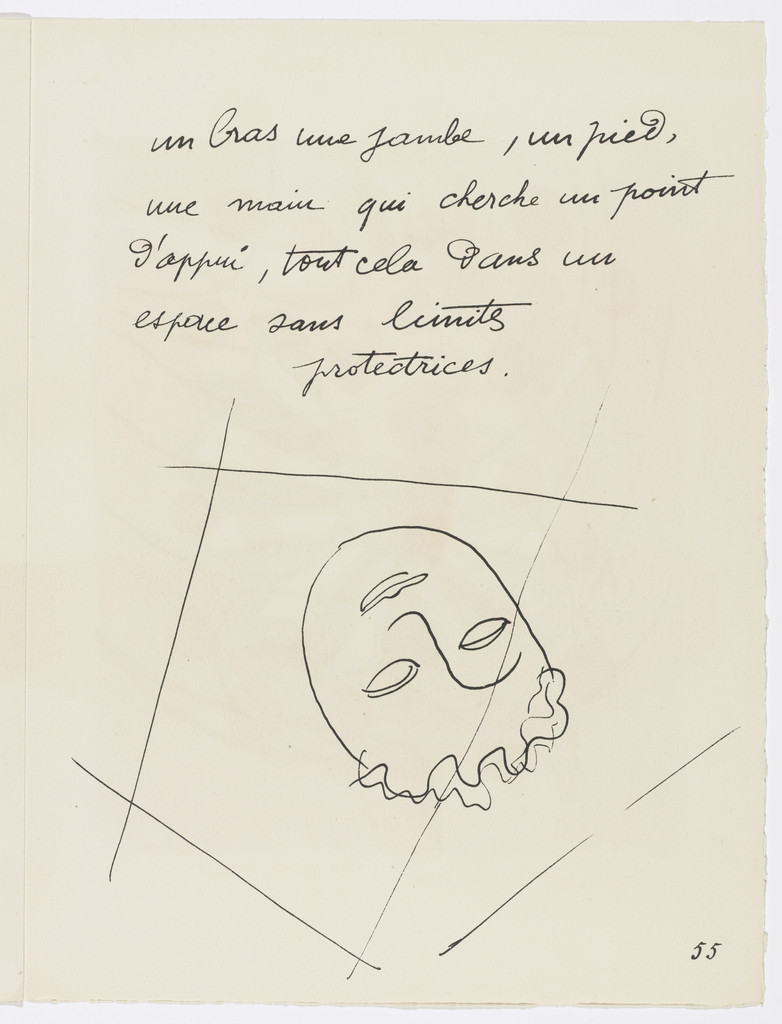 un bras une jambe, un pied,
une main qui cherche un point
d'appui, tout cela dans un
espace sans limites
protectrices.
55